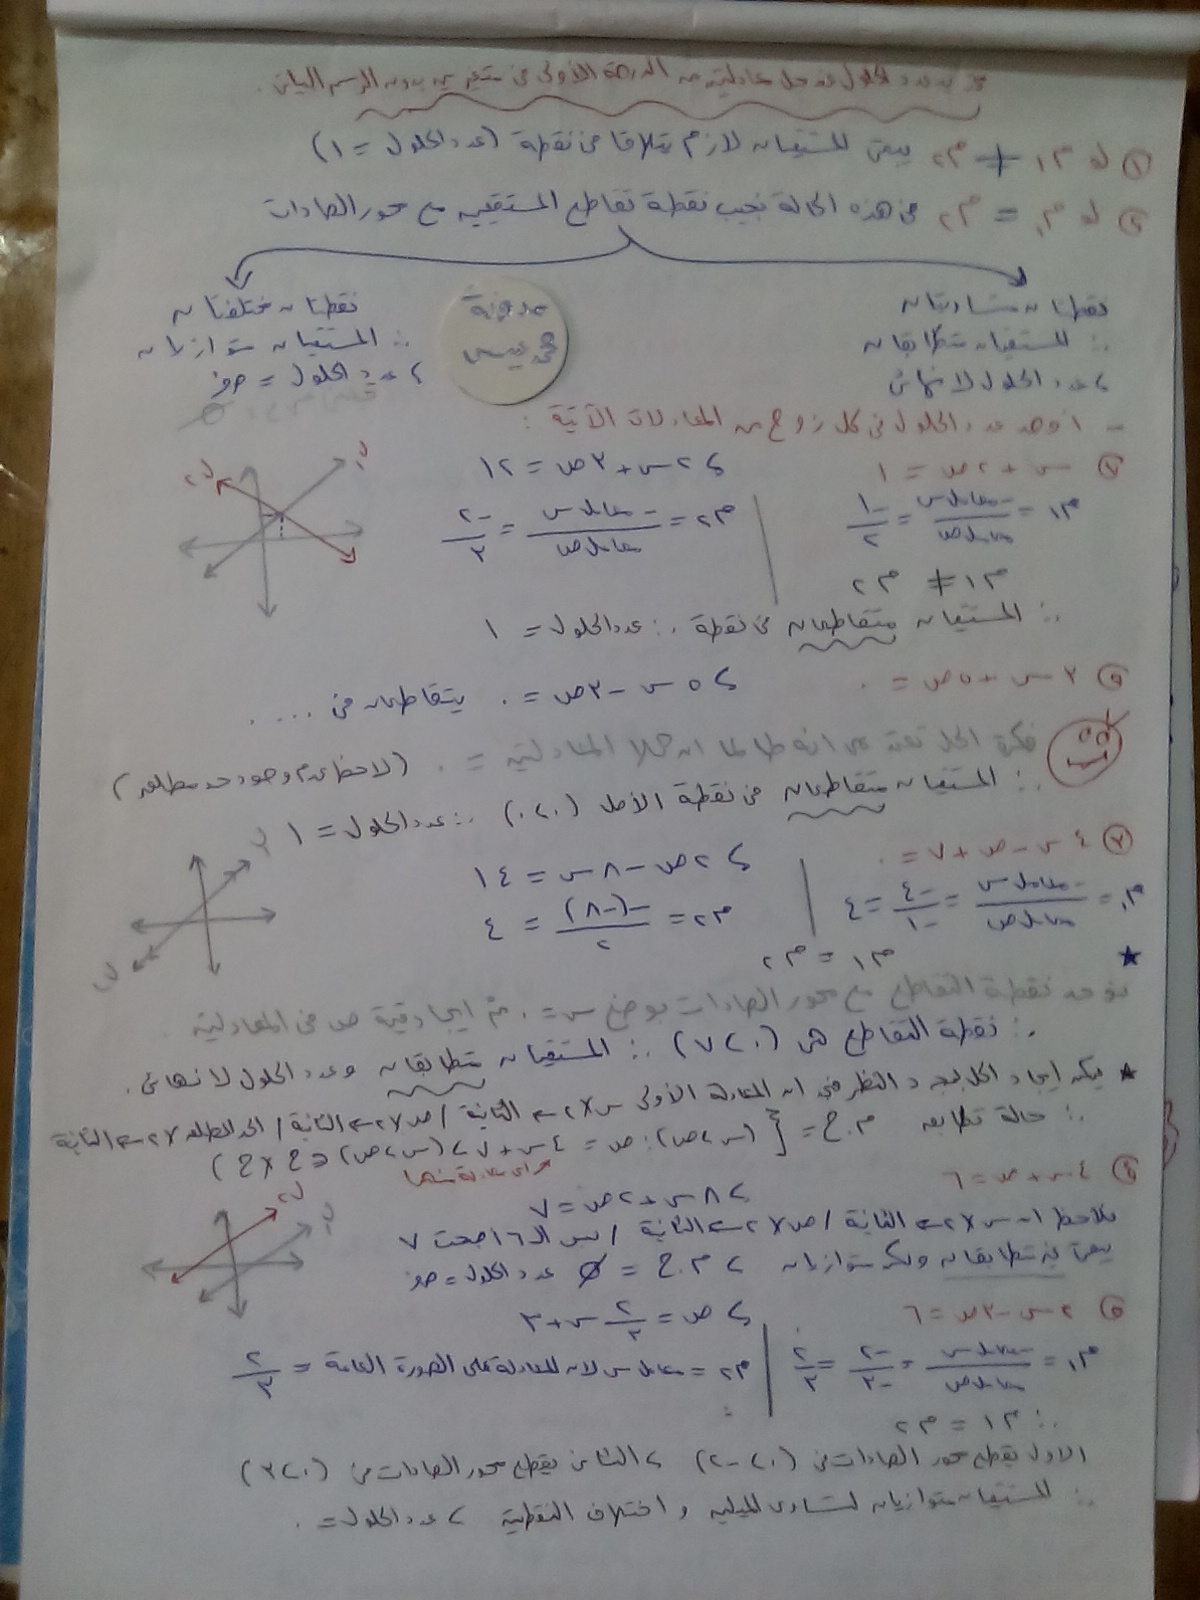 تحديد عدد الحلول عند حل معادلتين من الدرجة الأولى فى متغيرين بدون الرسم البيانى.
① لو م١ ≠ م٢ يبقى المستقيمان لازم يتلاقا فى نقطة (عدد الحلول = ١)
② لو م١ = م٢ فى هذه الحالة نجيب نقطة تقاطع المستقيمين مع محور الصادات
نقطتان متساويتان
∴ المستقيمان متطابقان
، عدد الحلول لا نهائى
نقطتان مختلفتان
∴ المستقيمان متوازيان
، عدد الحلول = صفر
مدونة
- اوجد عدد الحلول فى كل زوج من المعادلات الآتية :
① س + ٢ص = ١ ، ٢س + ٣ص = ١٢
م١ = -معامل س / معامل ص = -١/٢ | م٢ = -معامل س / معامل ص = -٢/٣
م١ ≠ م٢
∴ المستقيمان متقاطعان فى نقطة ∴ عدد الحلول = ١
② ٣س + ٥ص = ٠ ، ٥س - ٣ص = ٠ يتقاطعان فى ....
فكرة الحل انه طالما ان المعادلتين = ٠ (لاحظ عدم وجود حد مطلق)
∴ المستقيمان متقاطعان فى نقطة الأصل (٠،٠) ∴ عدد الحلول = ١
③ ٤س - ص + ٧ = ٠ ، ٢ص - ٨س = ١٤
م١ = -معامل س / معامل ص = -٤/-١ = ٤ | م٢ = -(-٨)/٢ = ٤
م١ = م٢
★ نوجد نقطة التقاطع مع محور الصادات بوضع س = ٠ ثم ايجاد قيمة ص فى المعادلتين
∴ نقطة التقاطع هى (٠،٧) ∴ المستقيمان متطابقان وعدد الحلول لا نهائى.
★ يمكن إيجاد الحل بمجرد النظر فى ان المعادلة الأولى س×٢ ← الثانية / ص×٢ ← الثانية / الحد المطلق ×٢ ← الثانية
∴ حالة تطابق م.ح = {(س،ص): ص = ٤س + ٧ ، (س،ص) ∈ ح × ح}
④ ٤س + ص = ٦ ، ٨س + ٢ص = ٧
نلاحظ ان س×٢ ← الثانية / ص×٢ ← الثانية / بس الـ ٦ اصبحت ٧
يبقى غير متطابقان ولكن متوازيان ، م.ح = ∅ عدد الحلول = صفر
⑤ ٢س - ٣ص = ٦ ، ص = ٢/٣ س + ٣
م١ = -معامل س / معامل ص = -٢/-٣ = ٢/٣ | م٢ = معامل س لان المعادلة على الصورة العامة = ٢/٣
∴ م١ = م٢
الاول يقطع محور الصادات فى (٠،-٢) ، الثانى يقطع محور الصادات فى (٠،٣)
∴ المستقيمان متوازيان لتساوى الميلين واختلاف النقطتين ، عدد الحلول = ٠